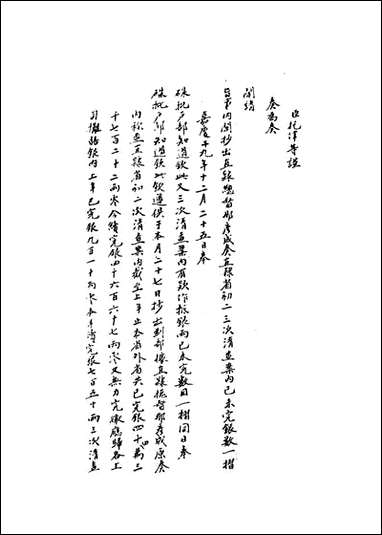 臣托津等謹
奏為奏
聞請
旨事內閣抄出直隸總督那彥成奏直隸省初二三次清查案內已未完銀數一摺
嘉慶十九年十二月二十五日奉
硃批戶部知道欽此又三次清查案內有款作抵銀兩已未完數目一摺同日奉
硃批戶部知道欽此欽遵俱于本月二十七日抄出到部據直隸總督那彥成原奏
內稱查直隸省初二次清查案內截至上年止本省外省共已完銀四十四萬三
千七百二十二兩零今續完銀四十六百六十七兩零又無力完繳應歸各上
司攤賠銀內上年已完銀九百一十兩零本年續完銀七百五十兩三次清查